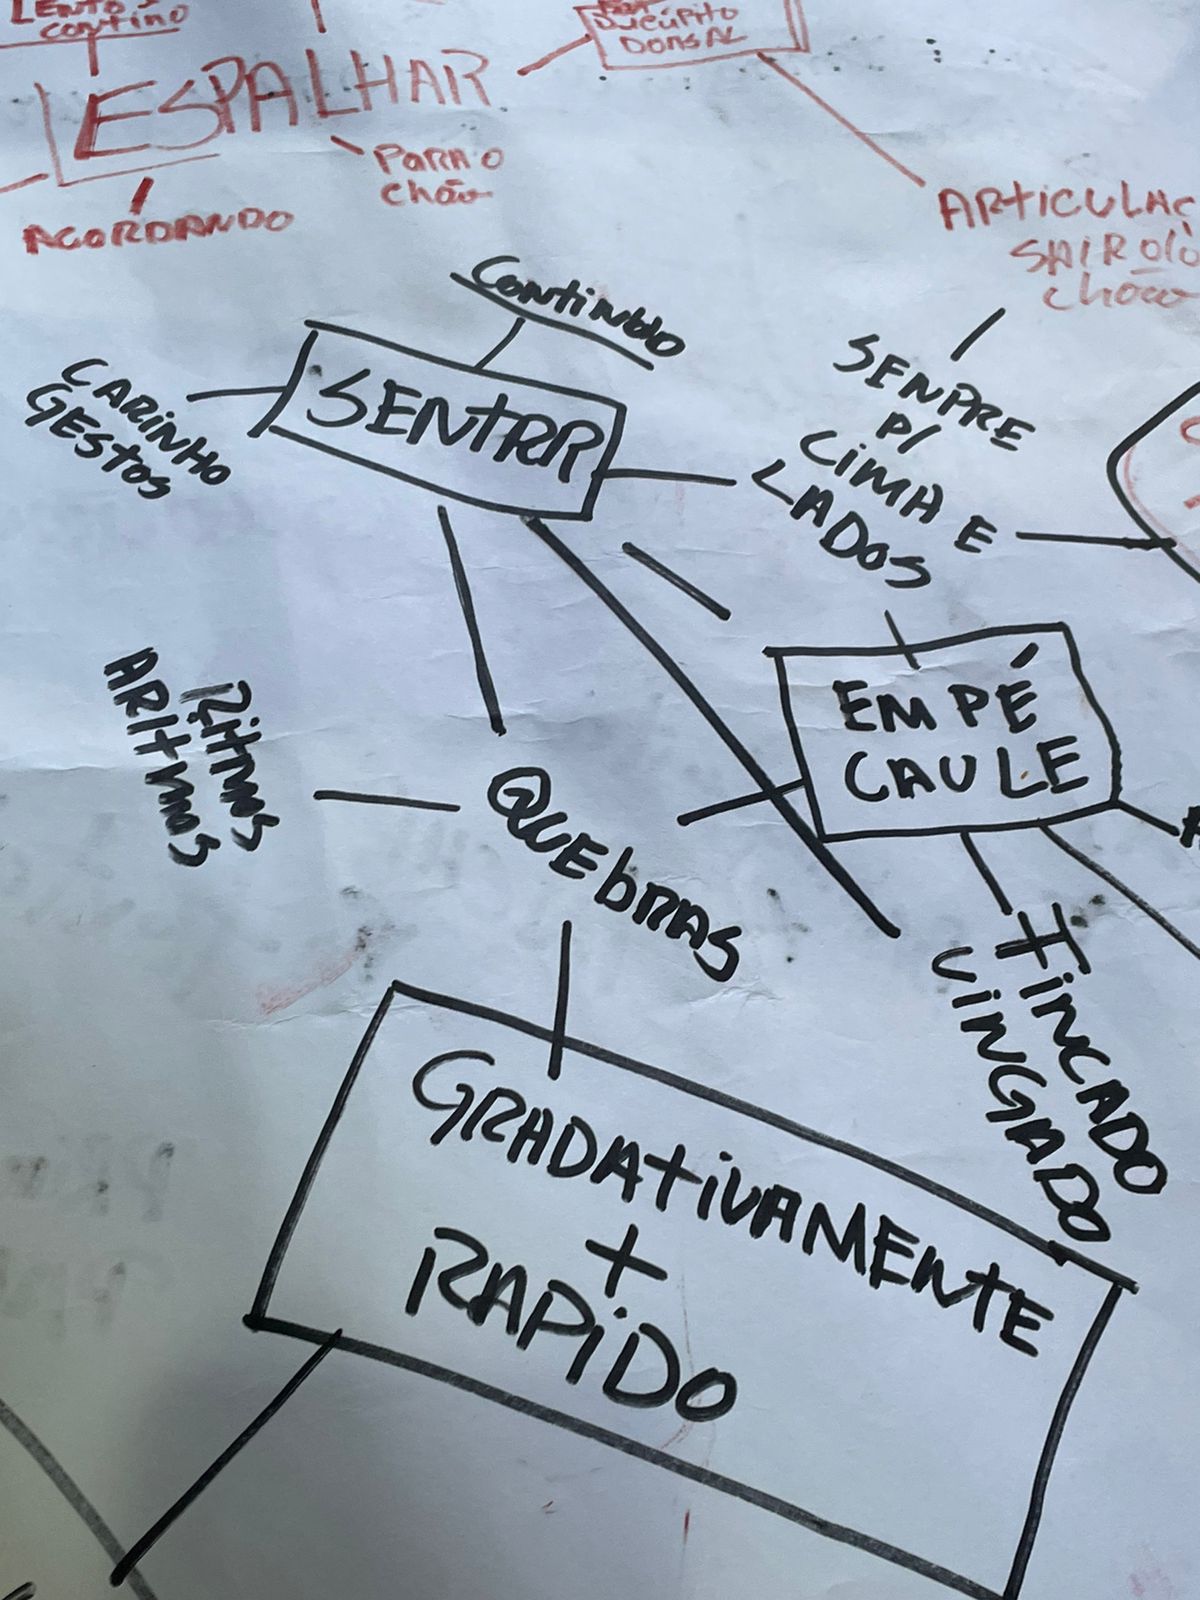 LENTO
contino
DECÚPITO
DORSAL
ESPALHAR
PARA O
chão
ACORDANDO
ARTICULAÇ
SAIR
chão
Contindo
SENTRR
CARINHO
GEStOS
SENPRE
P/
CIMA E
LADOS
EM PÉ
CAULE
RitmoS
ARItmoS
QUEbRAS
FINCADO
VINGADO
GRADAtivAMENTE
+
RAPiDO